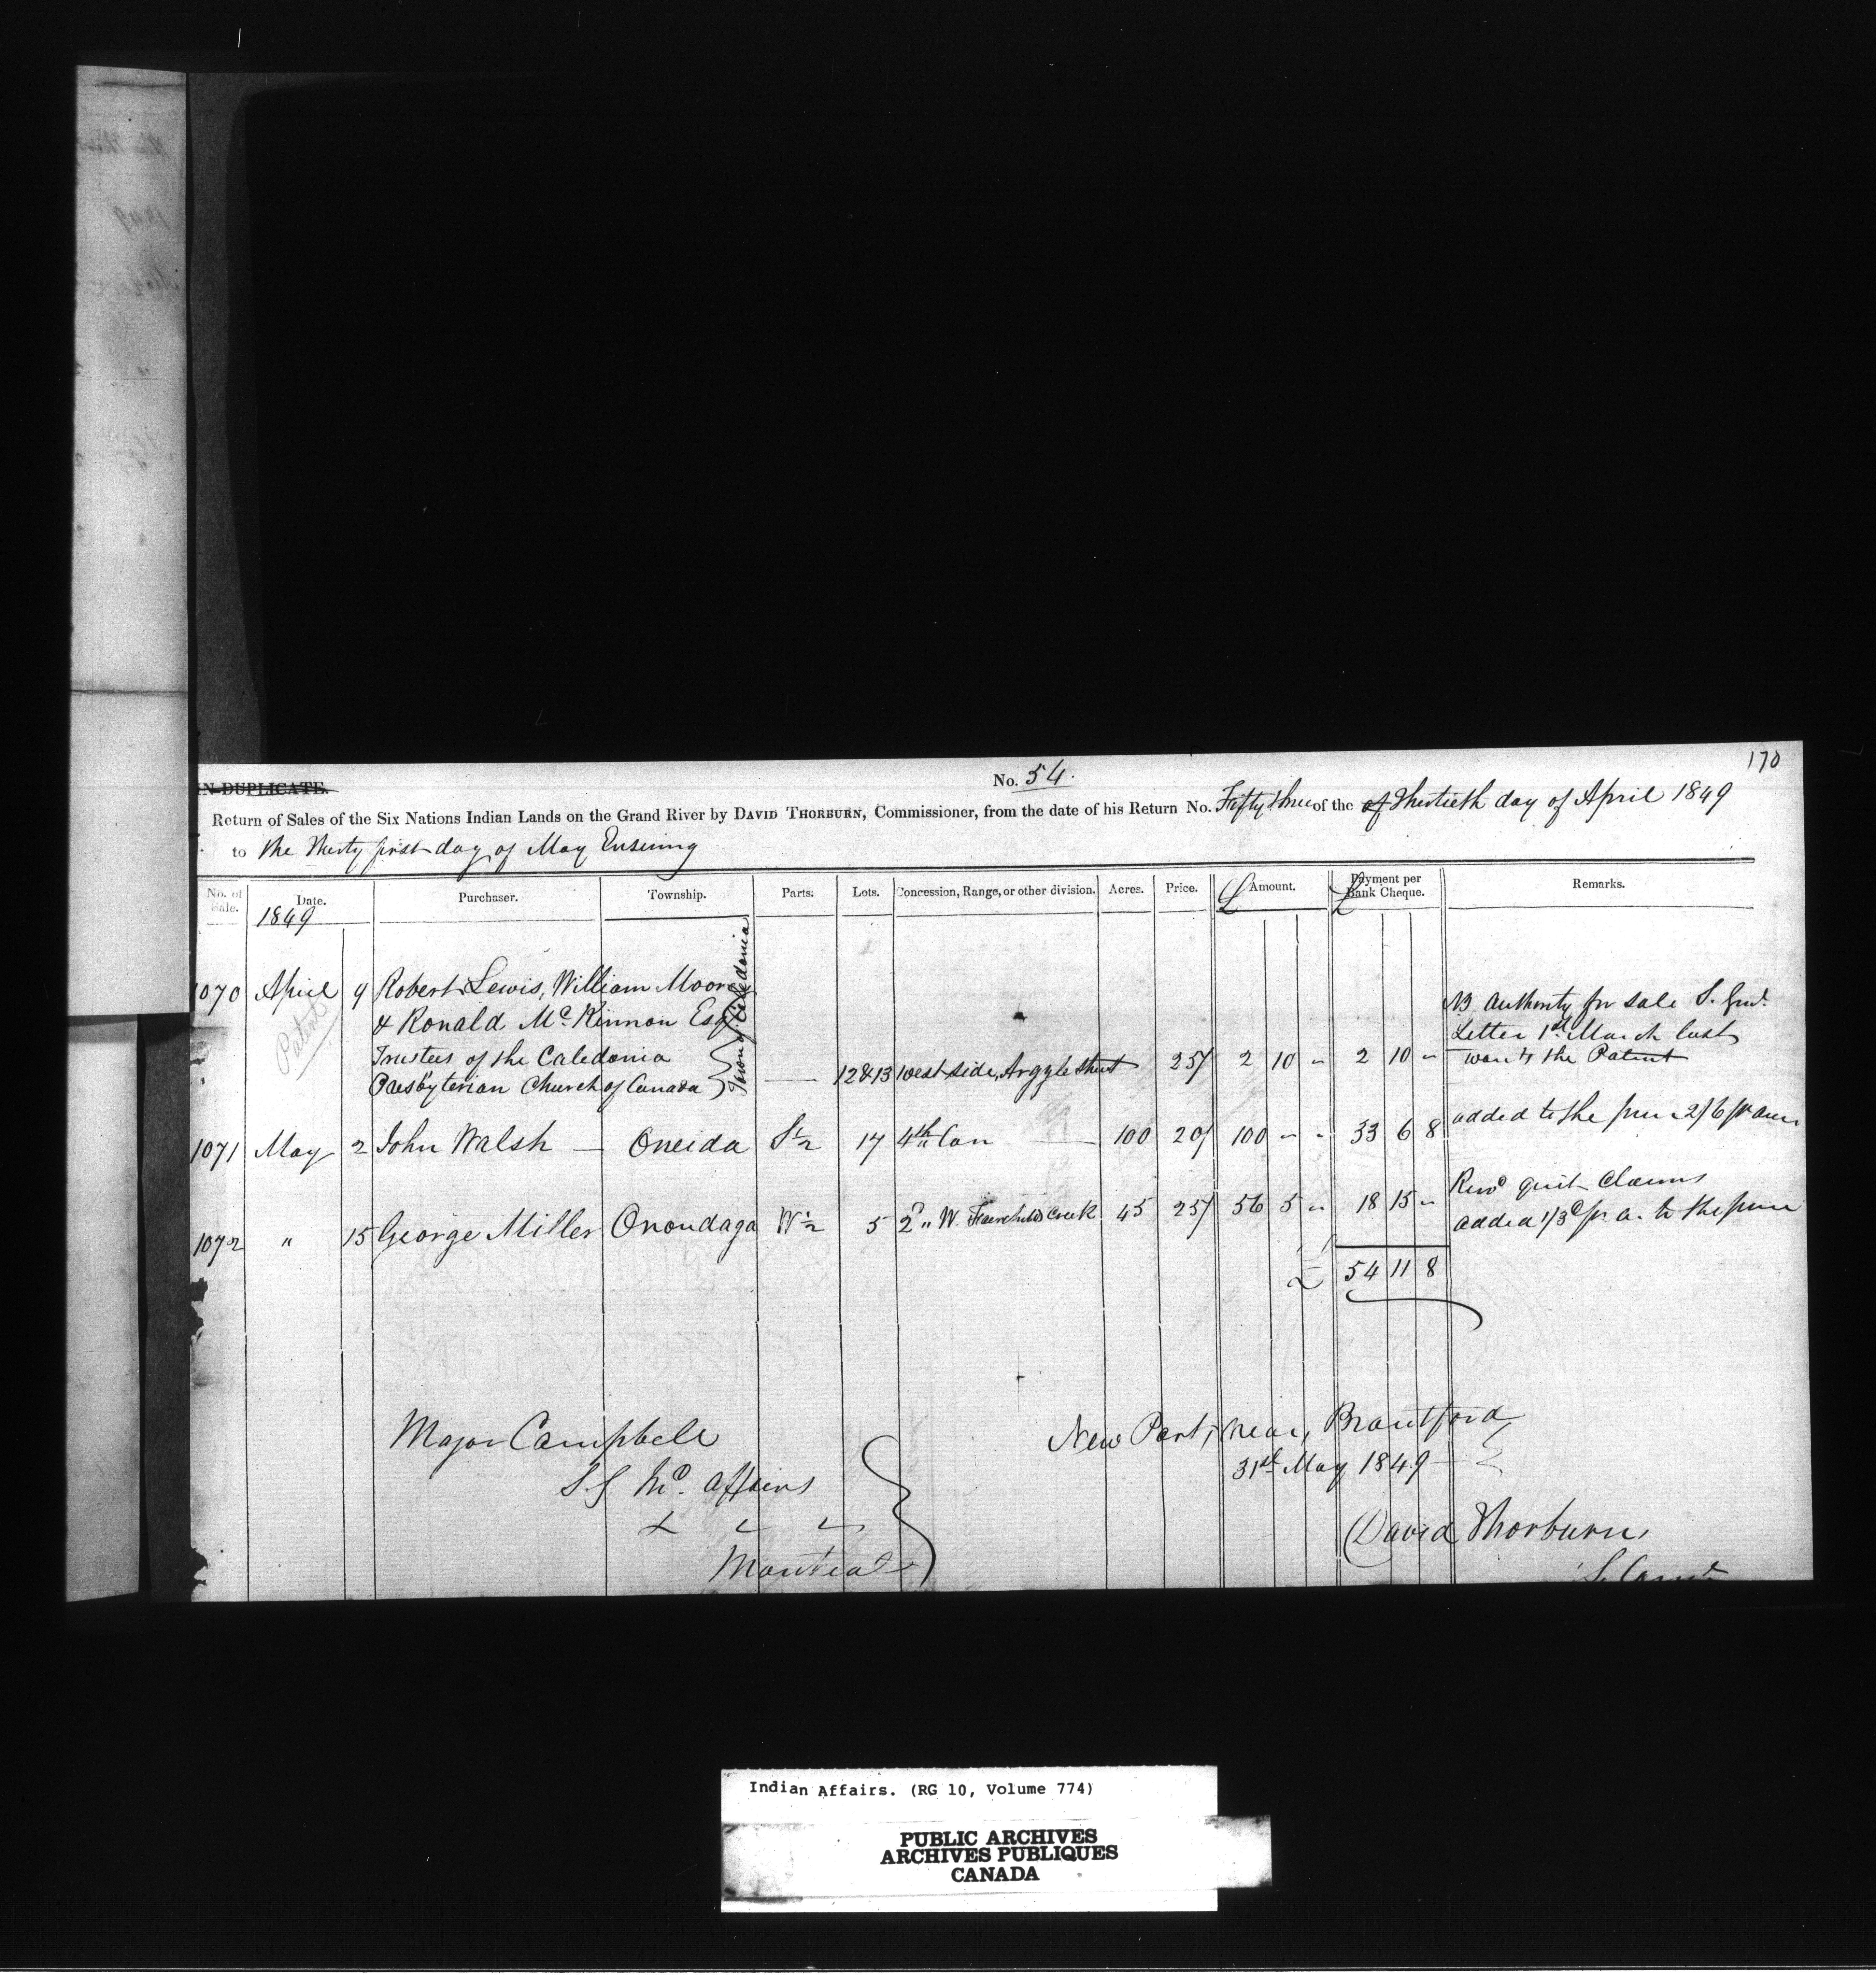 170
IN DUPLICATE.
No. 54.
Return of Sales of the Six Nations Indian Lands on the Grand River by DAVID THORBURN, Commissioner, from the date of his Return No. Fifty three of the of Thirtieth day of April 1849
to the Thirty first day of May Ensuing
No. of Sale. Date. Purchaser. Township. Parts. Lots. Concession, Range, or other division. Acres. Price. £ Amount. £ Payment per Bank Cheque. Remarks.
1849
1070 April 9 Robert Lewis, William Moore
& Ronald Mc. Kinnon Esqr
Trustees of the Caledonia
Presbyterian Church of Canada
Town of Caledonia
— 12 & 13 west side, Argyle Street 25/ 2 10 " 2 10 "
NB Authority for sale S. Genl.
Letter 1st March last
wants the Patent
Patent
1071 May 2 John Walsh — Oneida S ½ 17 4th Con — 100 20/ 100 " " 33 6 8 added to the 2/6 pr
1072 " 15 George Miller Onondaga W ½ 5 2d " W. Fairchilds Creek 45 25/ 56 5 " 18 15 "
quit Claims
added 1/3d pr a. to the
£ 54 11 8
Major Campbell
S G Ind. Affairs
Montreal
New Port, near, Brantford
31st May 1849
David Thorburn
Indian Affairs. (RG 10, Volume 774)
PUBLIC ARCHIVES
ARCHIVES PUBLIQUES
CANADA